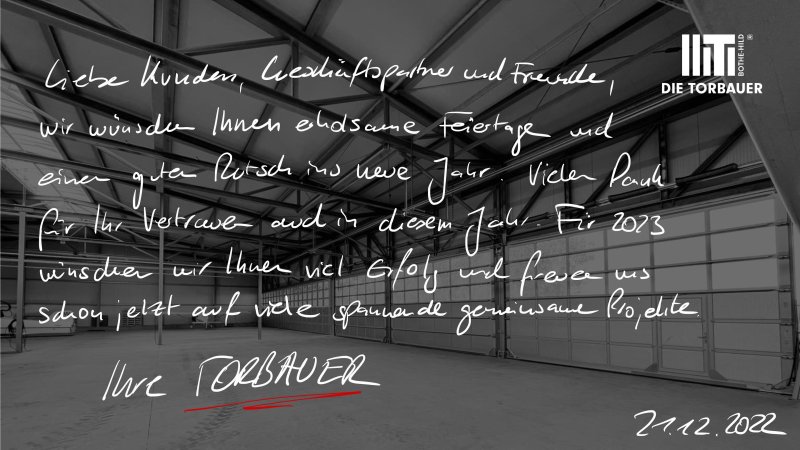 BOTHE-HILD
®
DIE TORBAUER
Liebe Kunden, Geschäftspartner und Freunde,
wir wünschen Ihnen erholsame Feiertage und
einen guten Rutsch ins neue Jahr. Vielen Dank
für Ihr Vertrauen auch in diesem Jahr. Für 2023
wünschen wir Ihnen viel Erfolg und freuen uns
schon jetzt auf viele spannende gemeinsame Projekte.
Ihre TORBAUER
21.12.2022